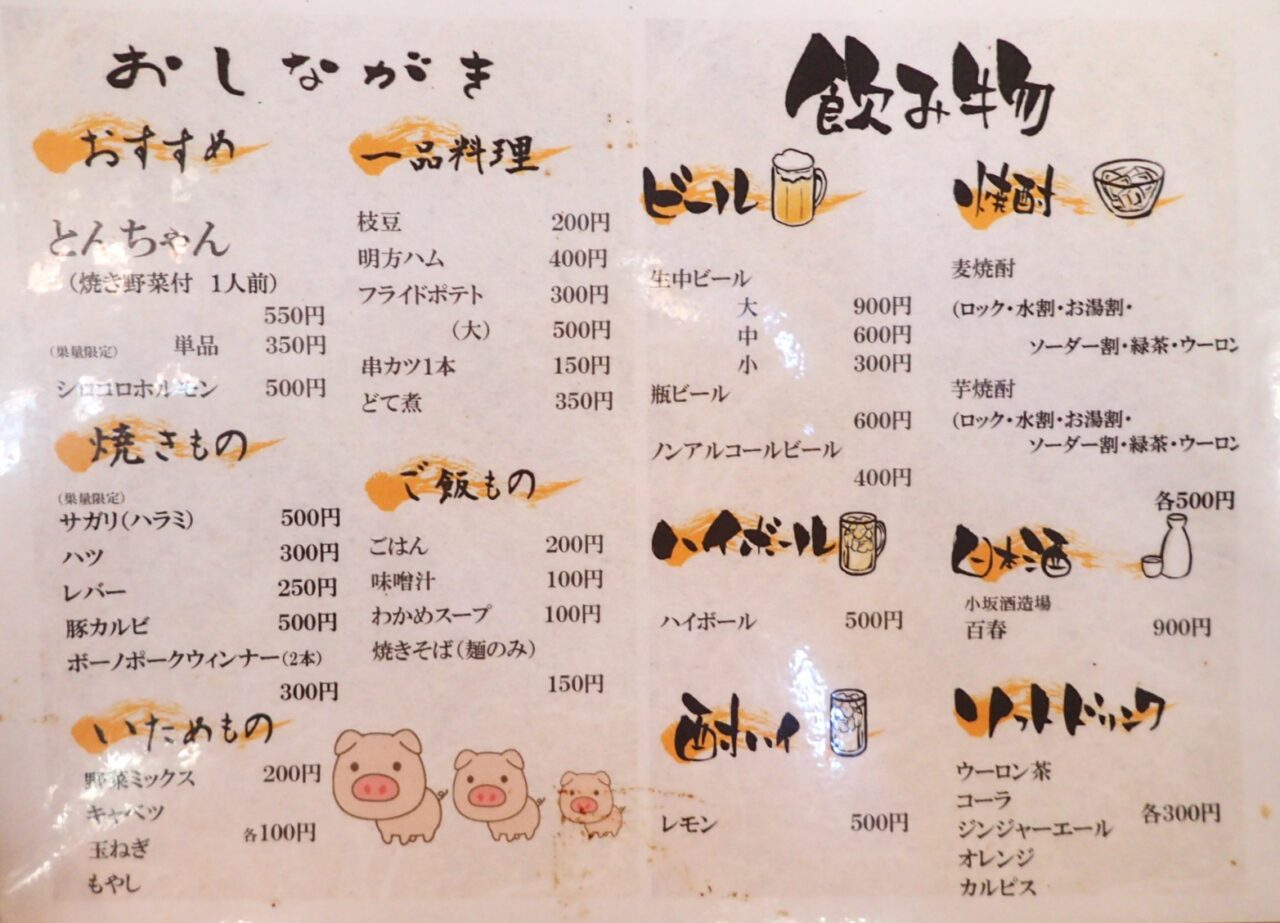 おしながき
おすすめ
とんちゃん
（焼き野菜付 1人前）
550円
（巣量限定） 単品 350円
シロコロホルモン 500円
焼きもの
（巣量限定）
サガリ（ハラミ） 500円
ハツ 300円
レバー 250円
豚カルビ 500円
ボーノポークウィンナー（2本）
300円
いためもの
野菜ミックス 200円
キャベツ
各100円
玉ねぎ
もやし
一品料理
枝豆 200円
明方ハム 400円
フライドポテト 300円
（大） 500円
串カツ1本 150円
どて煮 350円
ご飯もの
ごはん 200円
味噌汁 100円
わかめスープ 100円
焼きそば（麺のみ）
150円
飲み物
ビール
生中ビール
大 900円
中 600円
小 300円
瓶ビール
600円
ノンアルコールビール
400円
ハイボール
ハイボール 500円
酎ハイ
レモン 500円
焼酎
麦焼酎
（ロック・水割・お湯割・
ソーダー割・緑茶・ウーロン
芋焼酎
（ロック・水割・お湯割・
ソーダー割・緑茶・ウーロン
各500円
日本酒
小坂酒造場
百春 900円
ソフトドリンク
ウーロン茶
コーラ
各300円
ジンジャーエール
オレンジ
カルピス